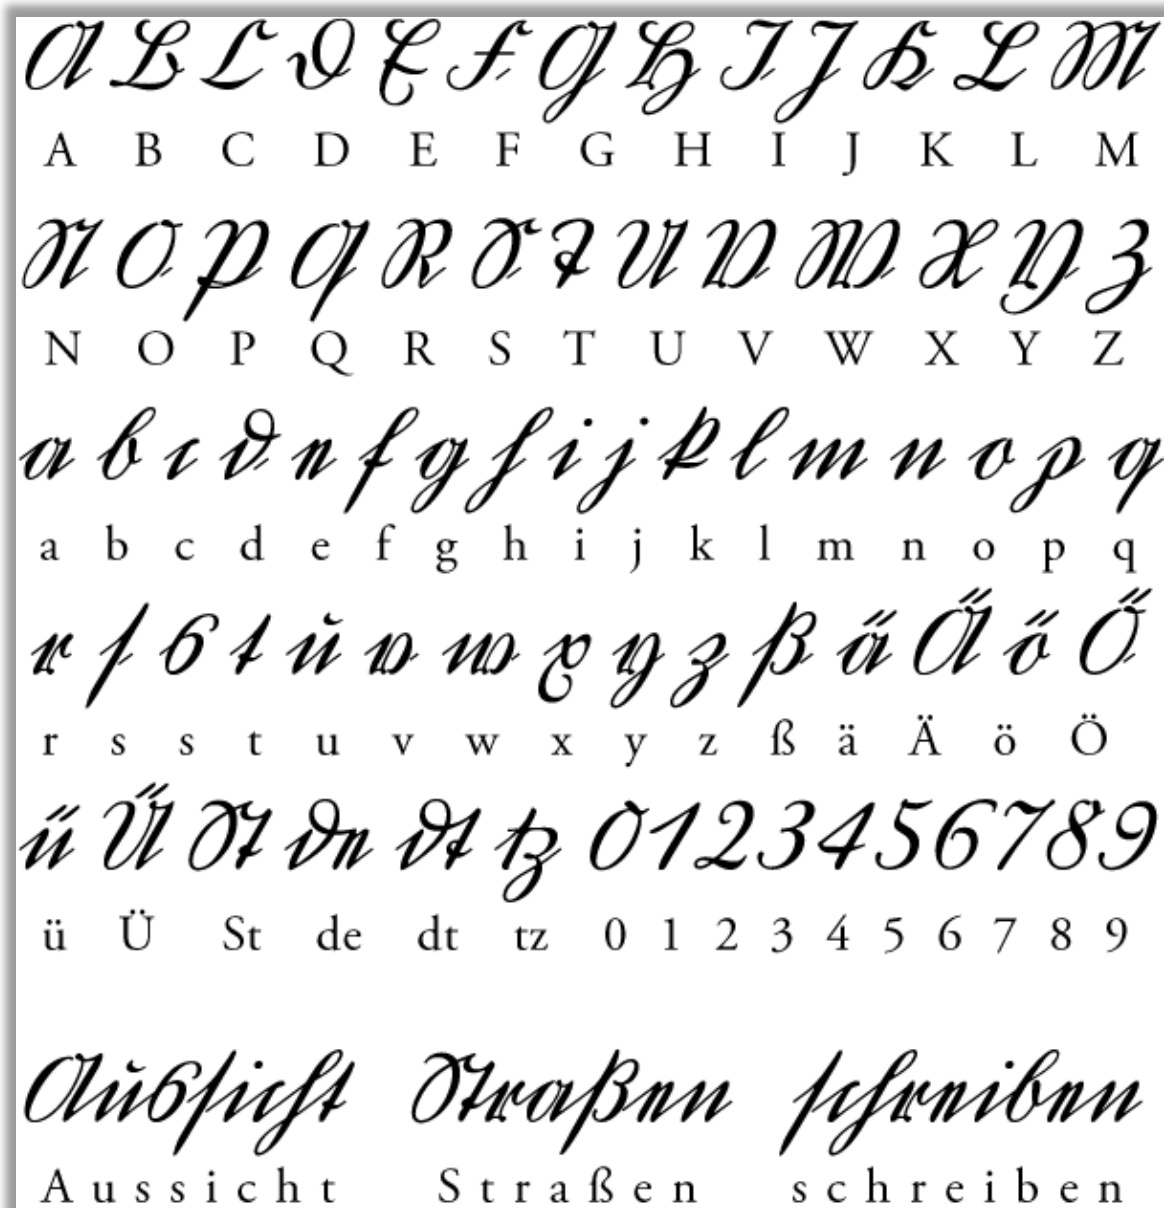 A B C D E F G H I J K L M
A B C D E F G H I J K L M
N O P Q R S T U V W X Y Z
N O P Q R S T U V W X Y Z
a b c d e f g h i j k l m n o p q
a b c d e f g h i j k l m n o p q
r ſ s t u v w x y z ß ä Ä ö Ö
r s s t u v w x y z ß ä Ä ö Ö
ü Ü St de dt tz 0 1 2 3 4 5 6 7 8 9
ü Ü St de dt tz 0 1 2 3 4 5 6 7 8 9
Ausſicht Straßen ſchreiben
Aussicht Straßen schreiben